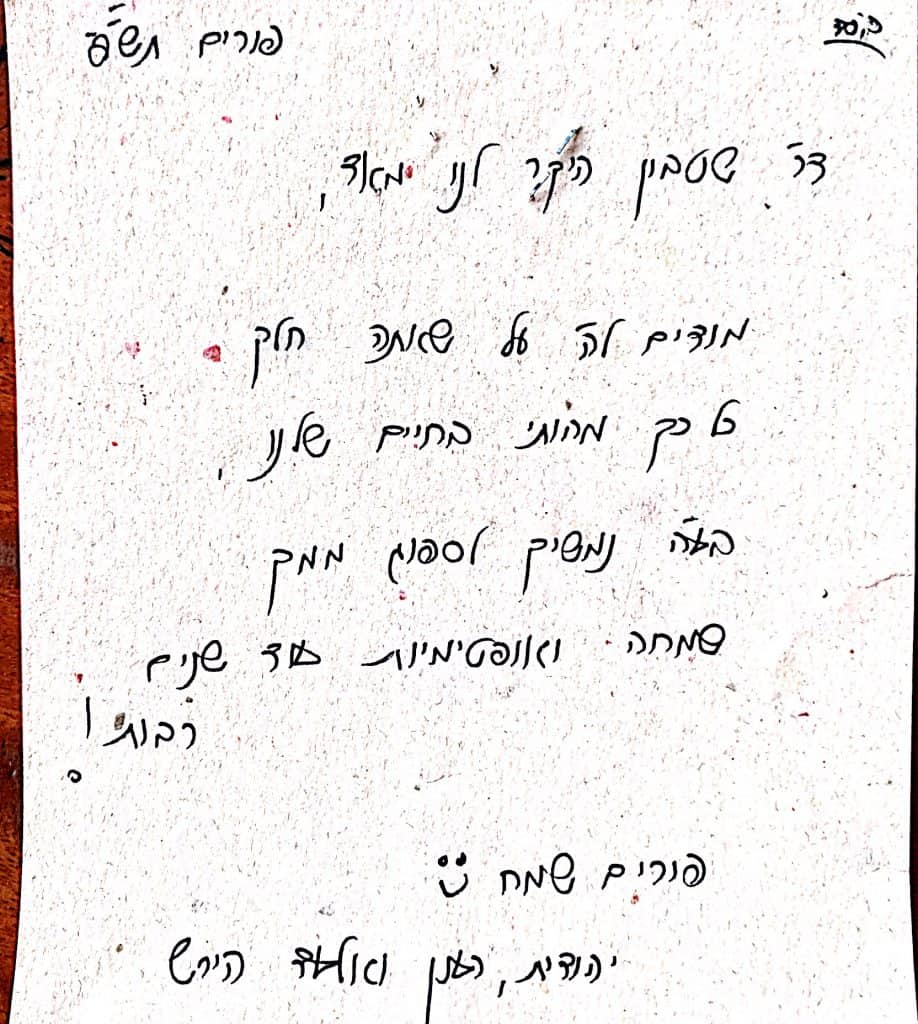 בסד
פורים תש"פ
דר' שטבין היקר לנו מאד,
מודים לה' על שאתה חלק
כל כך מהותי בחיים שלנו.
בע"ה נמשיך לספוג ממך
שמחה ואופטימיות עוד שנים
רבות!
פורים שמח
יהודית, רענן ואלעד הירש